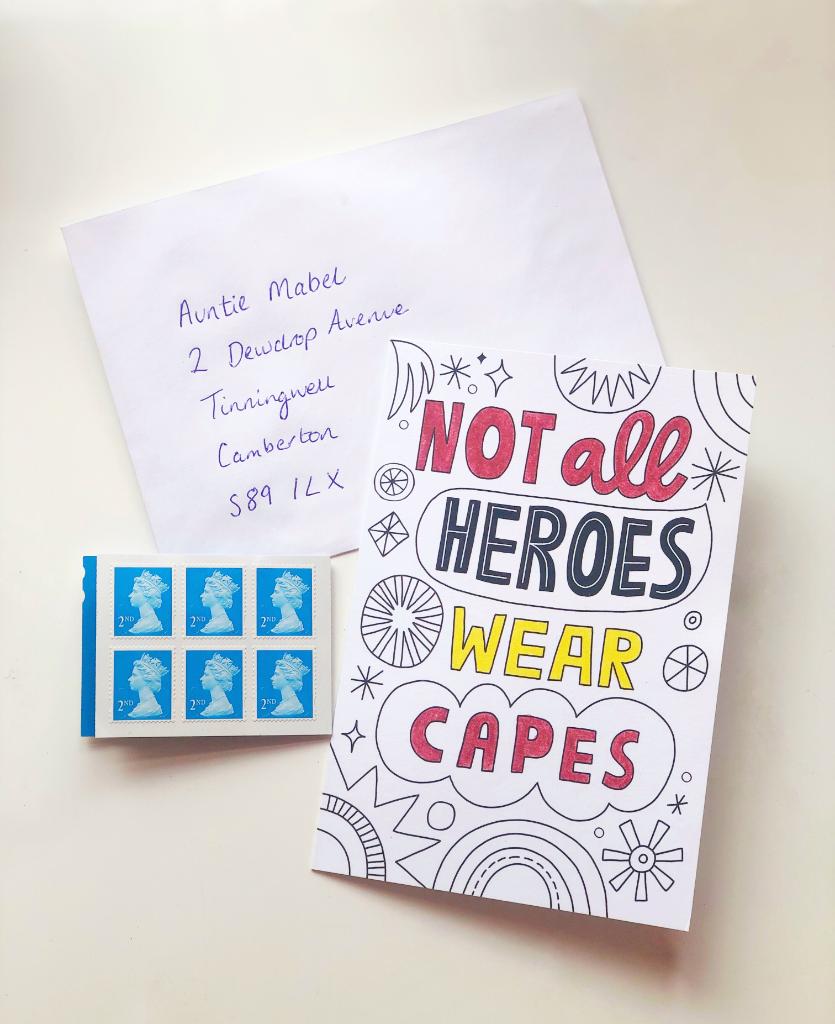 Auntie Mabel
2 Dewdrop Avenue
Tinningwell
Camberton
S89 1LX
NOT all
HEROES
WEAR
CAPES
2ND 2ND 2ND
2ND 2ND 2ND